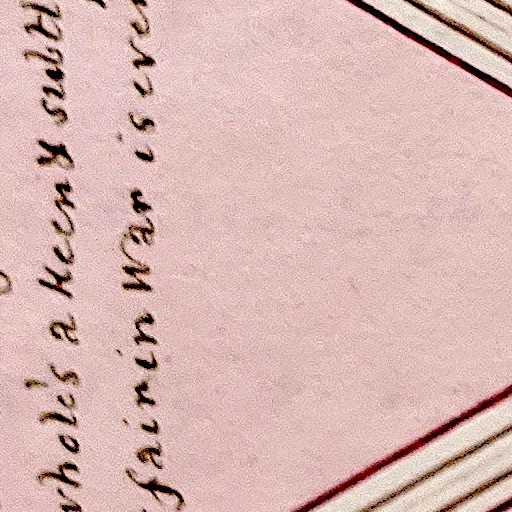 whole's a Keeny subtl
fair in War is ever